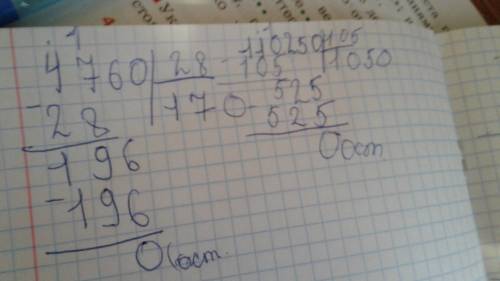 4760 | 28
- 28 | 170
196
- 196
0 (ост.
110250 | 105
- 105 | 1050
525
- 525
0 ост